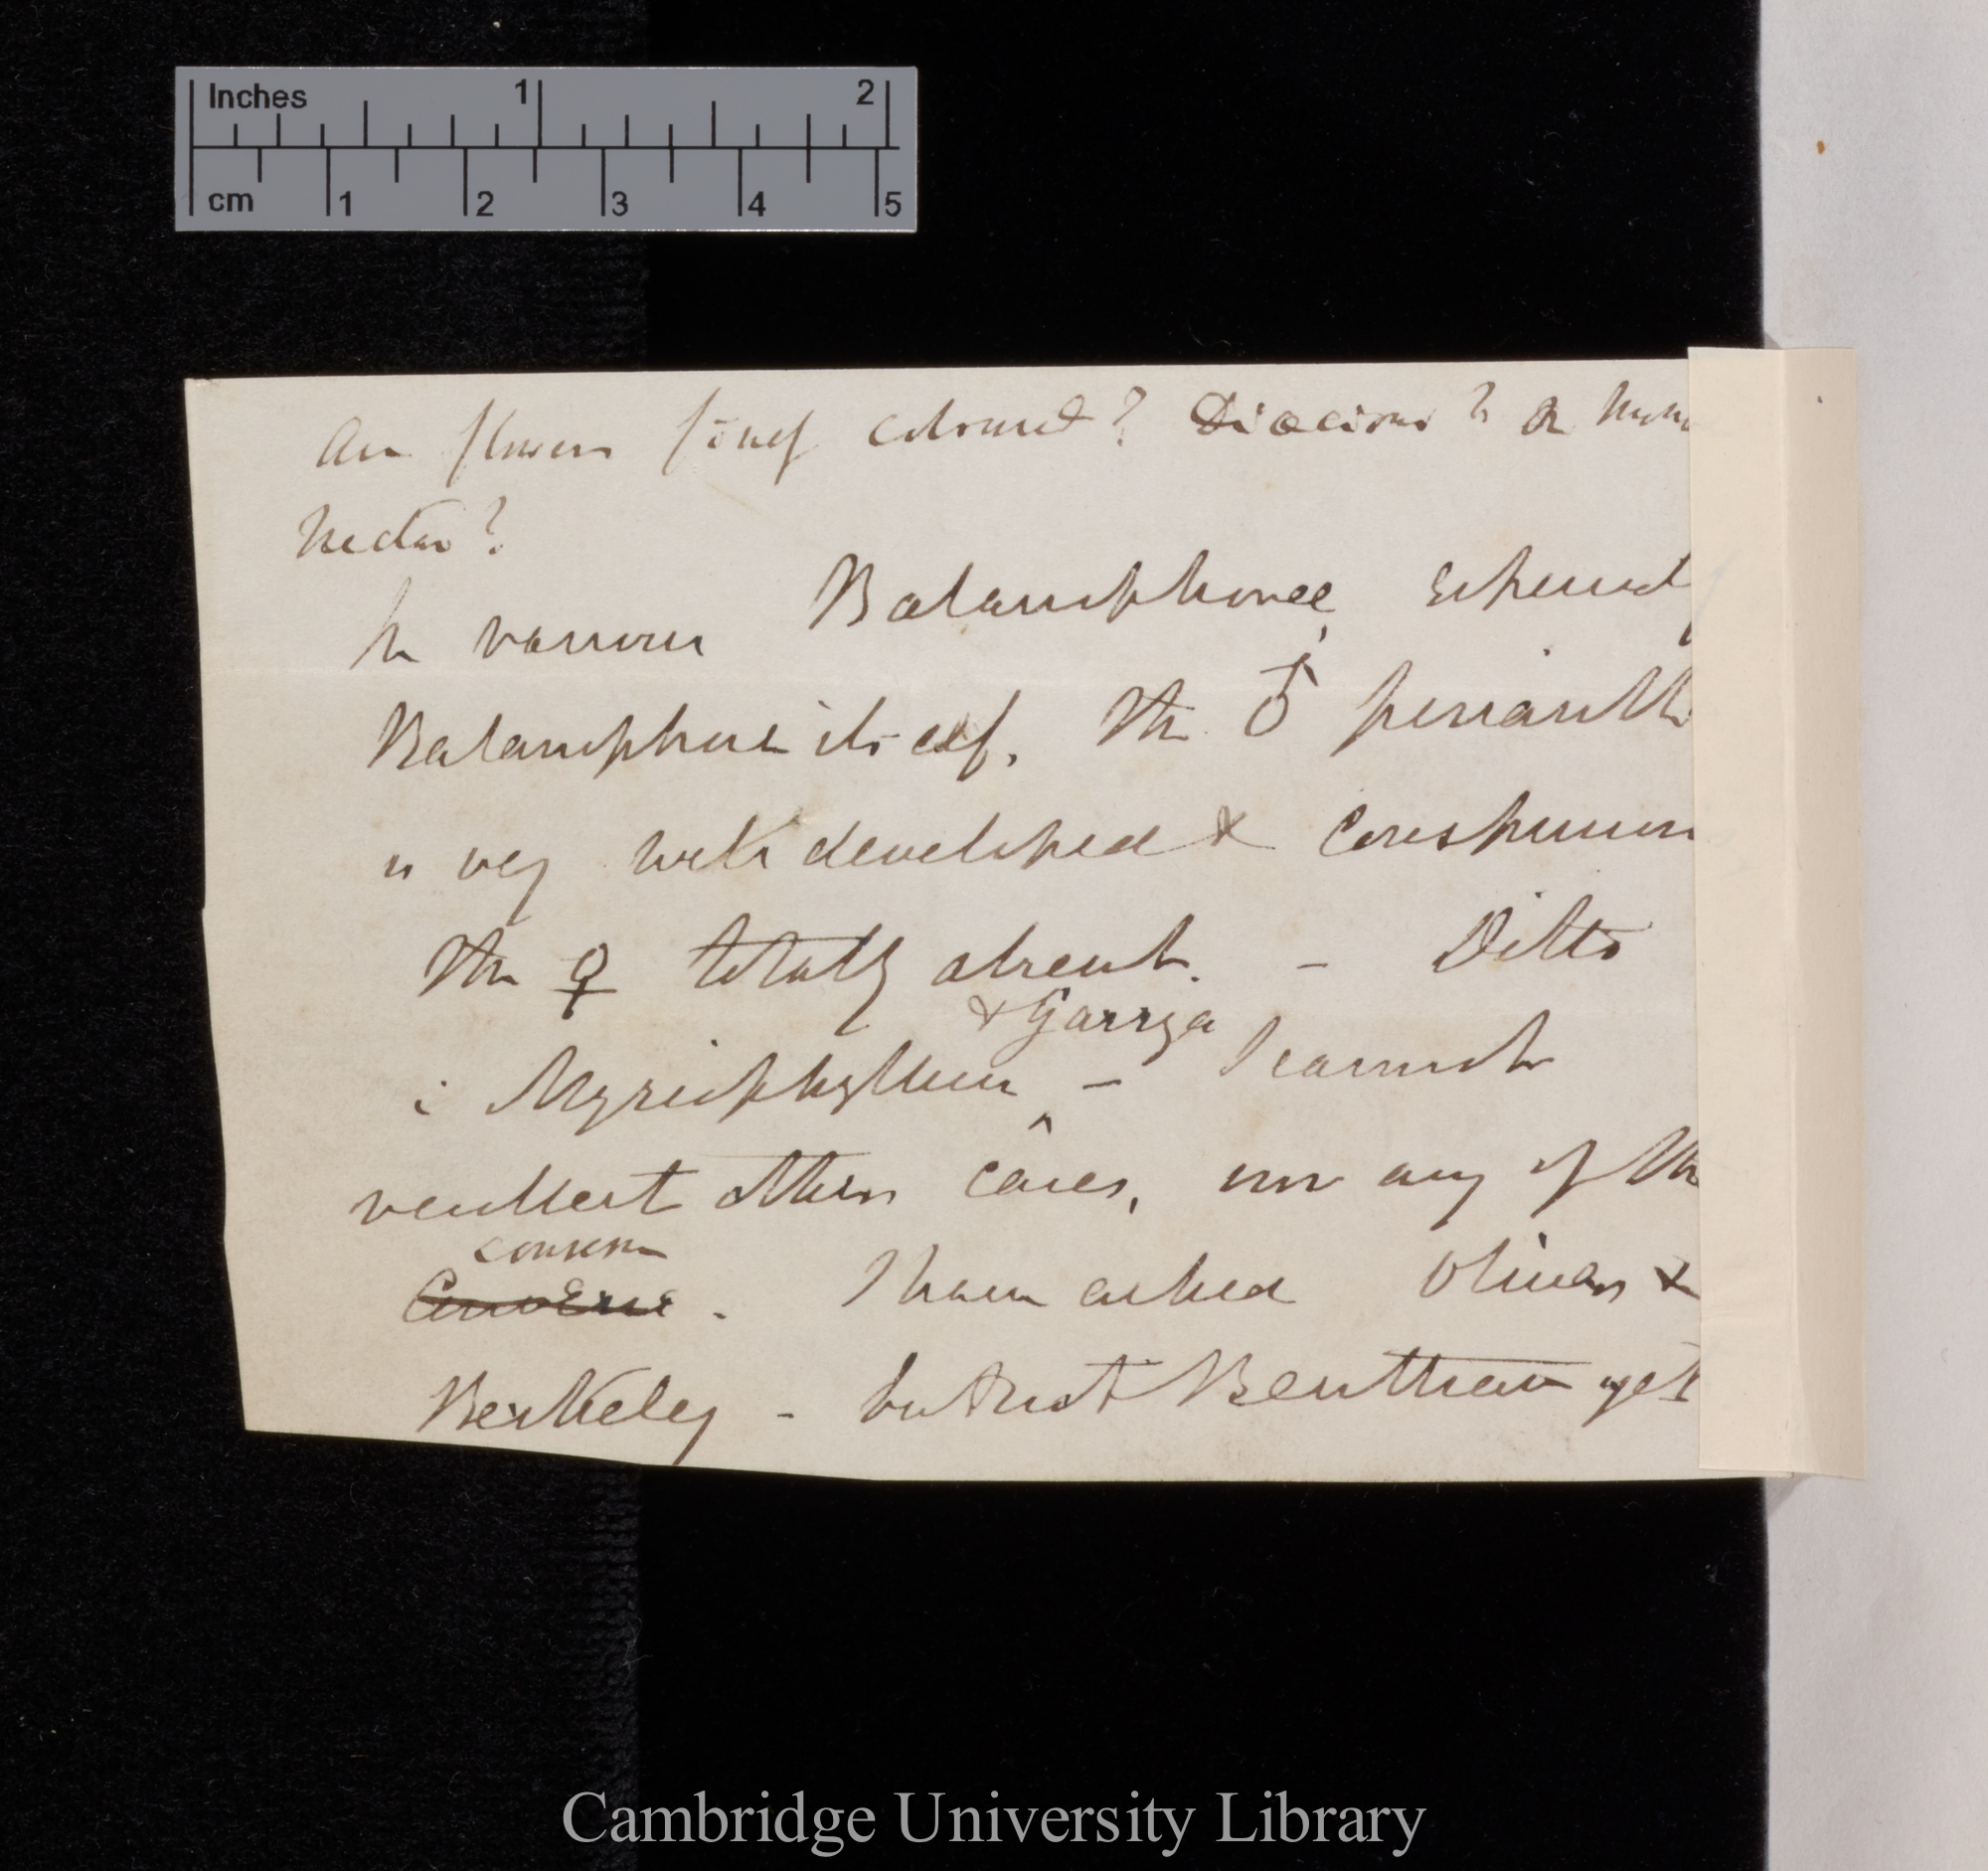 Inches 1 2
cm 1 2 3 4 5
Are flowers coloured? Dioecious? Do they
Nectar?
In various Balanophoreæ, especially
Balanophora itself, the ♂ perianth
is very well developed & conspicuous
the ♀ totally absent. – Ditto
& Garrya
i Myriophyllum ^ – I cannot
recollect others cases, nor any of the
converse
Converse. I have asked Oliver &
Berkeley – but not Bentham yet
Cambridge University Library